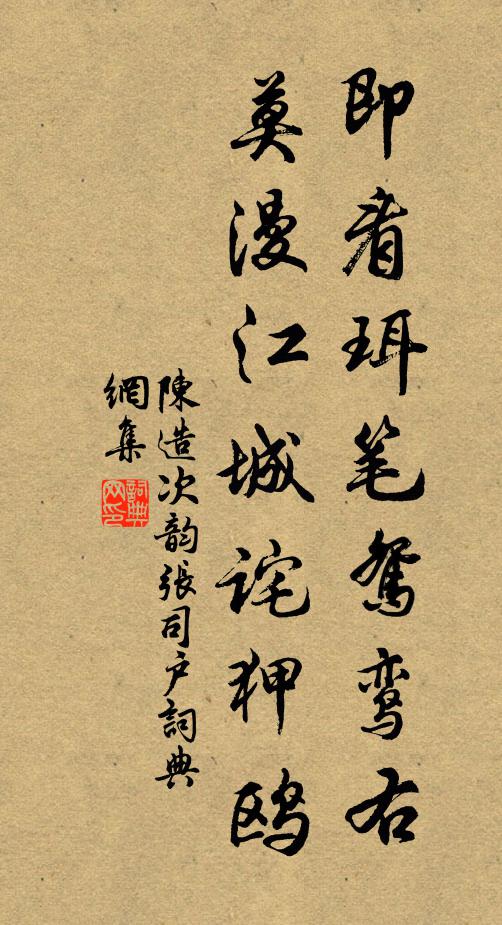 即看珥笔鴛鸾右
莫漫江城詫狎鸥
陳造次韵張司户詞典
網集
詞典
网印